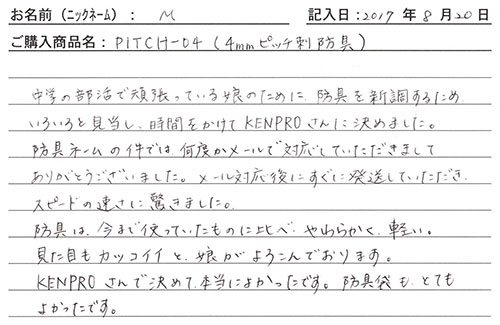 お名前(ニックネーム): M 記入日:2017年8月20日
ご購入商品名:PITCH-04(4mmピッチ刺防具)
中学の部活で頑張っている娘のために、防具を新調するため
いろいろと見当し、時間をかけてKENPROさんに決めました。
防具ネームの件では、何度かメールで対応していただきまして
ありがとうございました。メール対応後にすぐに発送していただき、
スピードの速さに驚きました。
防具は、今まで使っていたものに比べ、やわらかく、軽い。
見た目もカッコイイと、娘がよろこんでおります。
KENPROさんで決めて、本当によかったです。防具袋も、とても
よかったです。